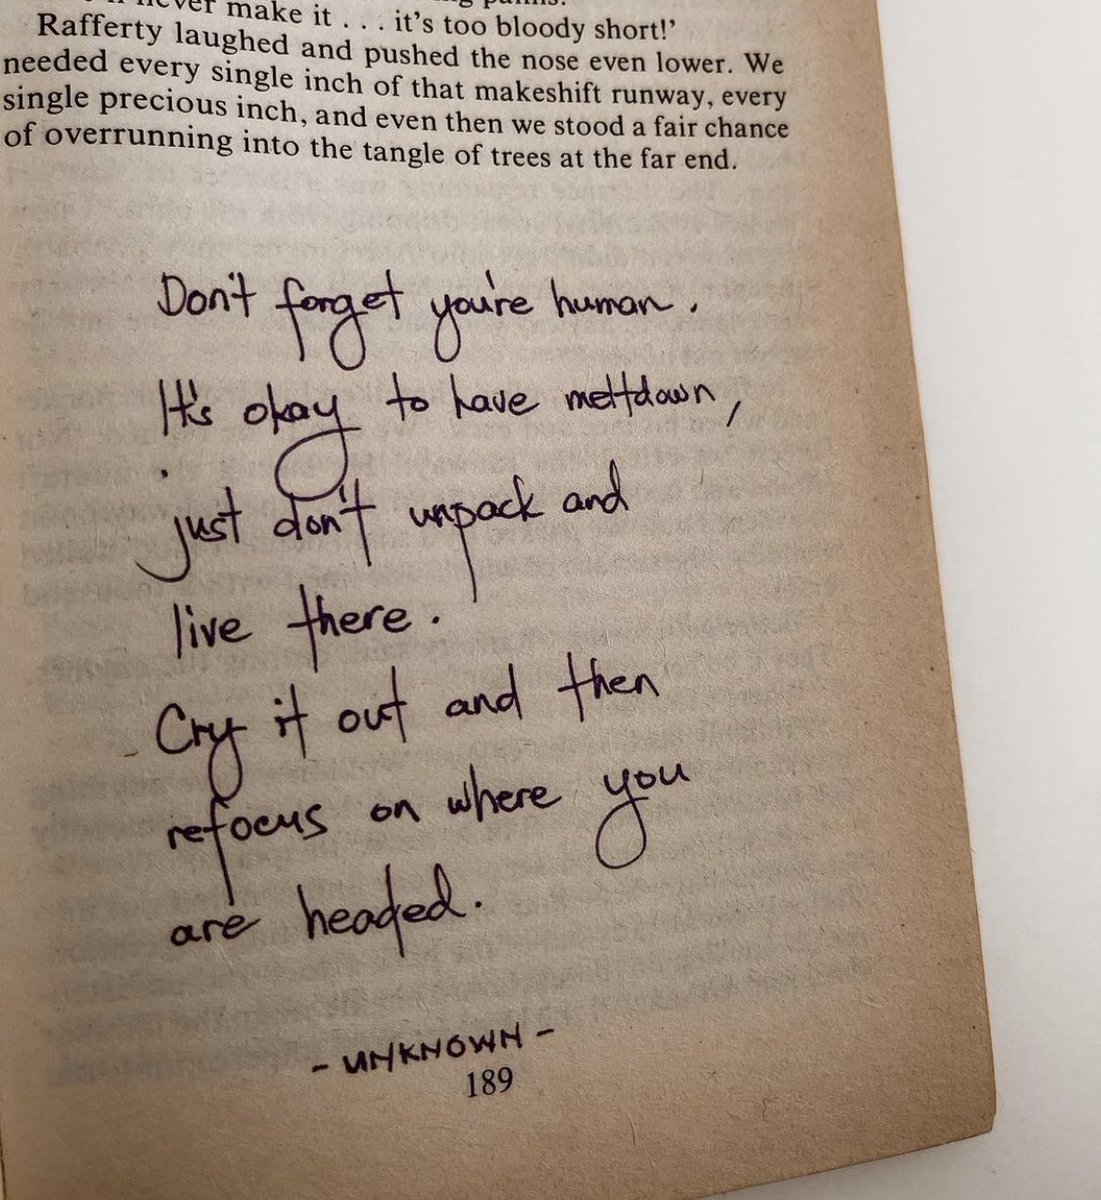 never make it . . . it's too bloody short!'
Rafferty laughed and pushed the nose even lower. We
needed every single inch of that makeshift runway, every
single precious inch, and even then we stood a fair chance
of overrunning into the tangle of trees at the far end.
Don't forget you're human.
It's okay to have meltdown,
just don't unpack and
live there.
Cry it out and then
refocus on where you
are headed.
- UNKNOWN -
189